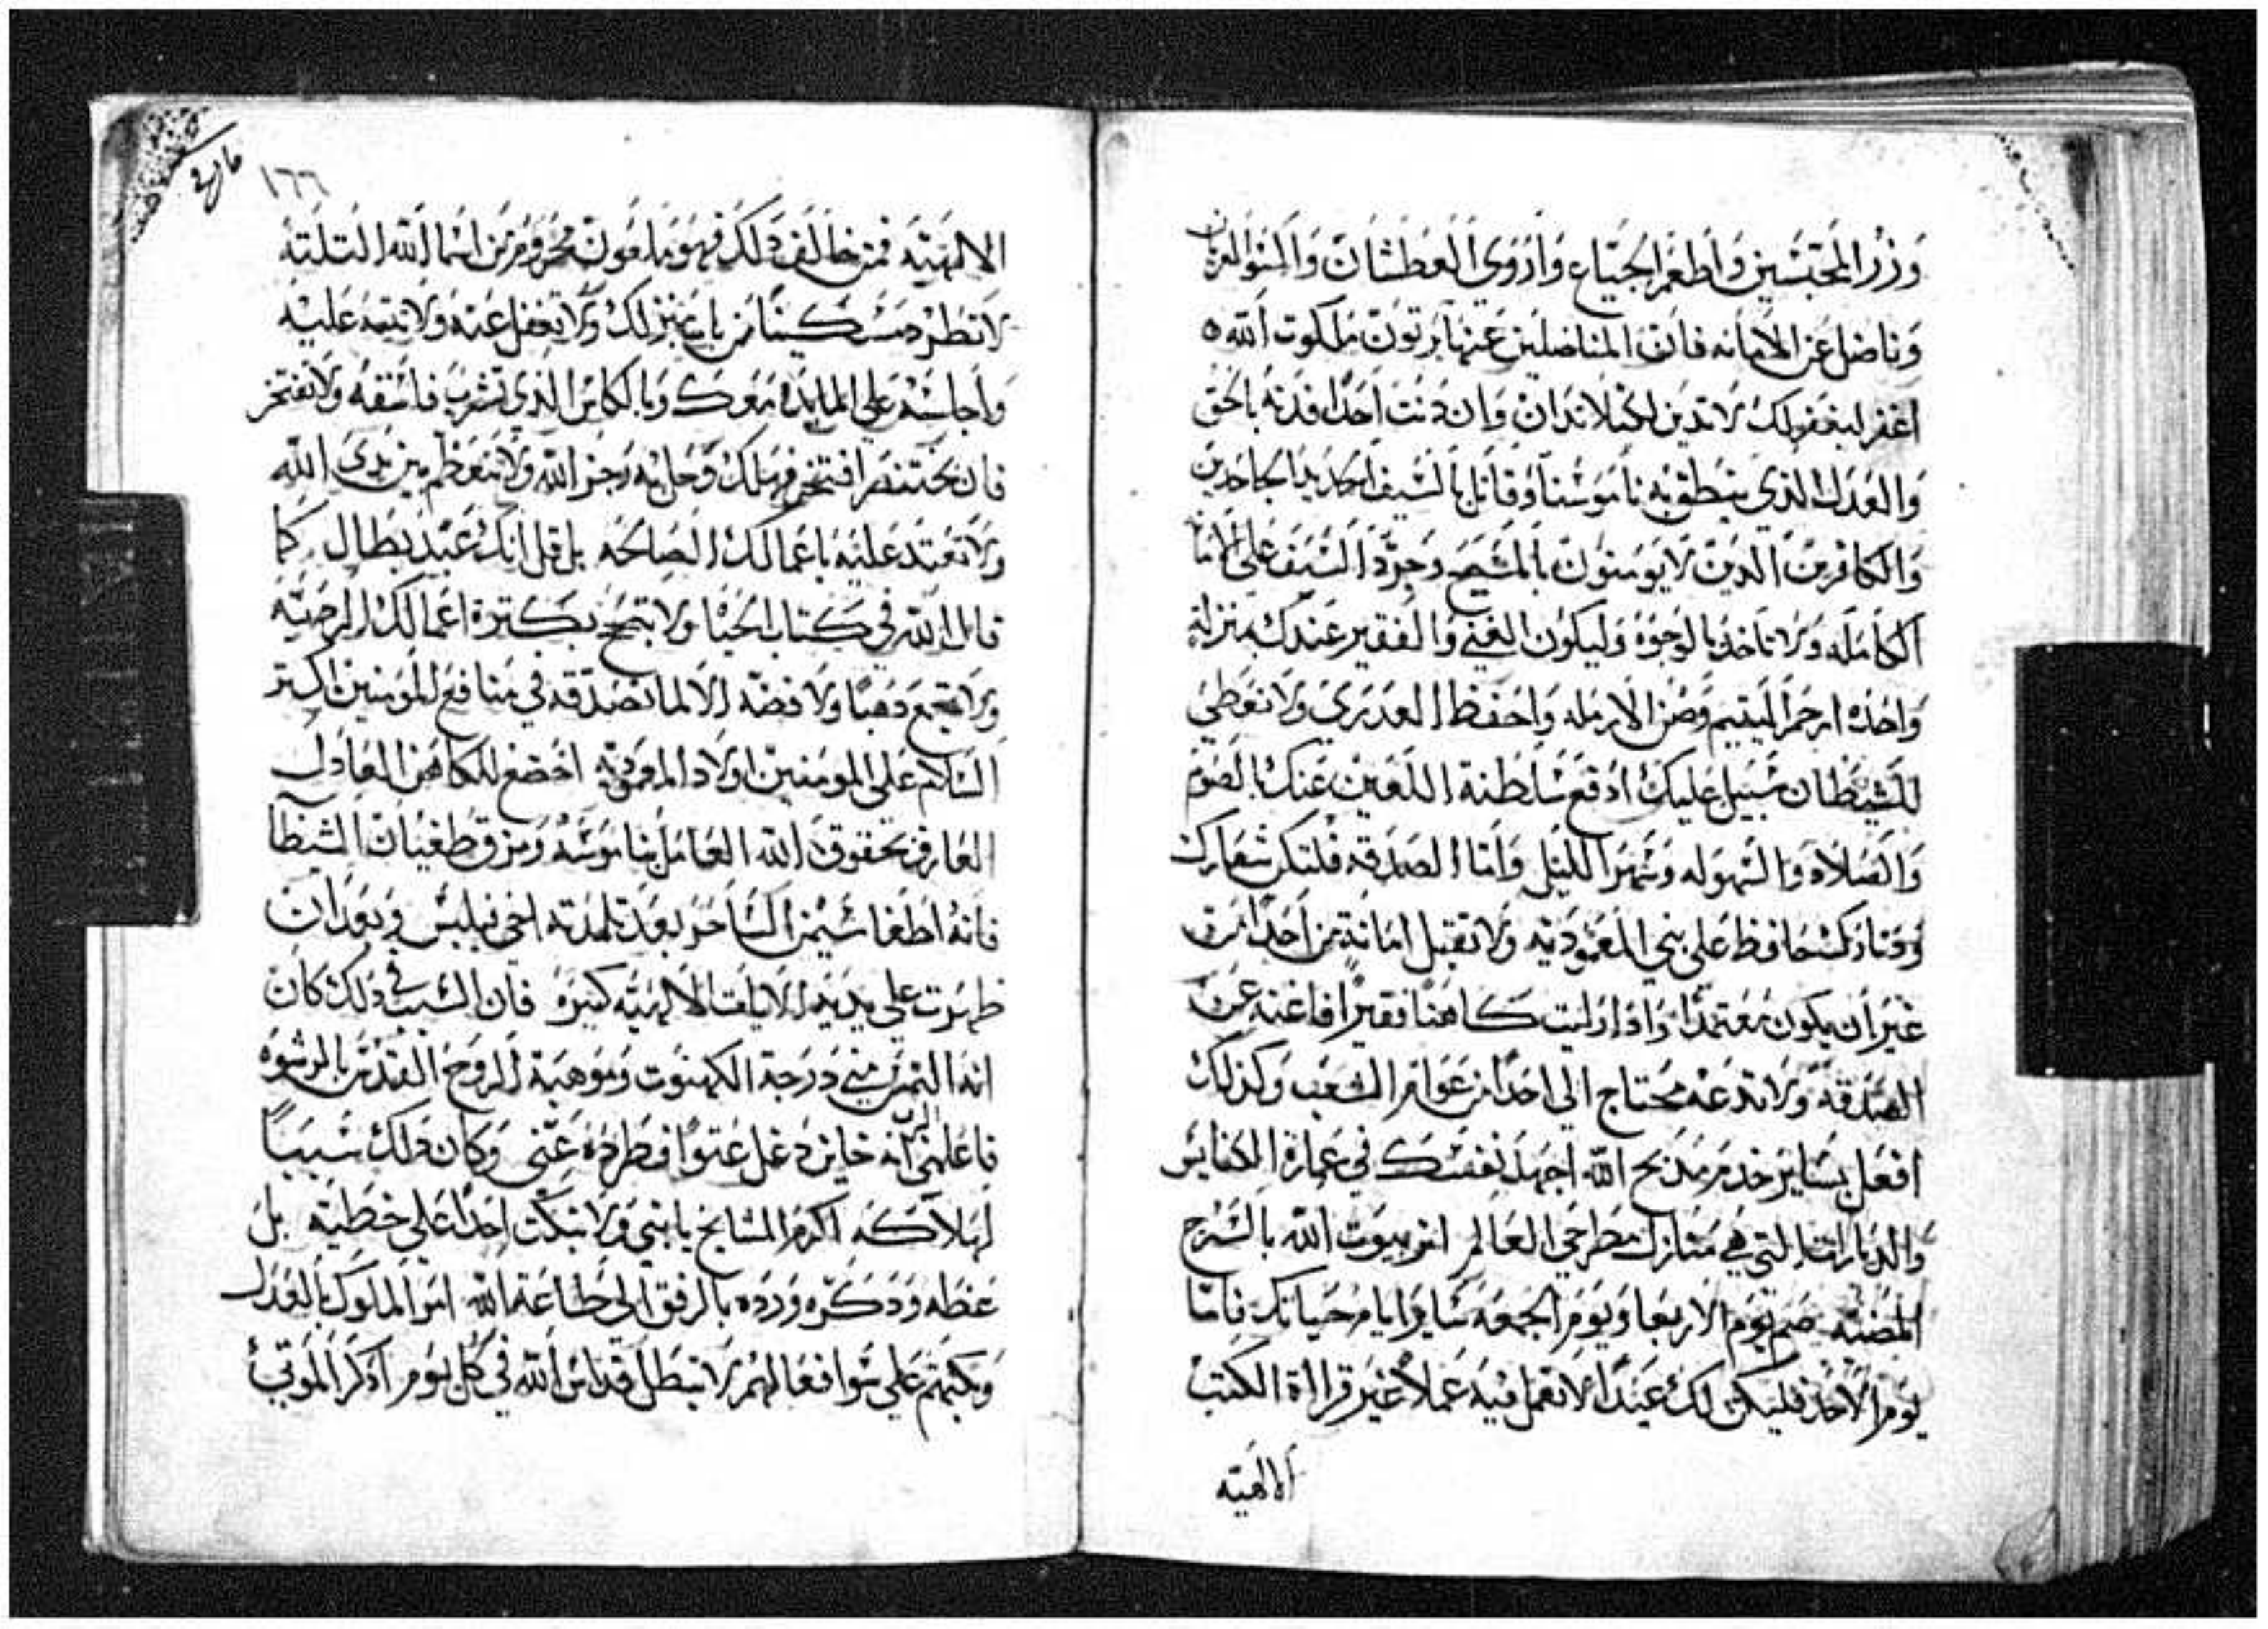 وزر المحتبسين واطعم الجياع واروي العطشان واكسوا العريان
وناضل عن الامانه فان المناضلين عنها يرتون ملكوت الله ه
اغفر ليغفر لك لا تدين لكيلا تدان وان دنت احدًا فدنه بالحق
والعدل الذي ينطق به ناموسنا وقاتل بالسيف الحديد الجاحدين
والكافرين الدين لا يومنون بالمسيح وجرد السيف علي الامانه
الكامله ولا تاخد بالوجوه وليكون الغني والفقير عندك بمنزلة
واحده ارحم اليتيم وصن الارمله واحفظ العدري ولا تعطي
للشيطان سبيل عليك ادفع سلطنة اللعين عنك بالصوم
والصلاه والسهوله وسهر الليل واما الصدقه فلتكن شعارك
ودتارك حافظ علي بني المعموديه ولا تقبل امانة من احدًا من
غير ان يكون معتمدًا واذا رايت كاهنًا فقيرًا فاغنه عن
الصدقه ولا تدعه محتاج الي احدًا من عوام الشعب وكذلك
افعل بساير خدم مدبح الله اجهد نفسك في عماره الكنايس
والديارات التي هي منازل مطرحي العالم انر بيوت الله بالسرج
المضيه صم يوم الاربعا ويوم الجمعه ساير ايام حياتك فاما
يوم الاحد فليكن لك عيدًا لا تعمل فيه عملاً غير قرااة الكتب
الالهيه
١٦٦
الالهيه فمن خالف دلك فهو ملعون محروم من اسما الله التلته
لا تطرد مسكينًا من باب منزلك ولا تغفل عنه ولا تتعد عليه
واجلسه علي المايده معك وبالكاس الذي تشرب فاسقه ولا تفتخر
فان بختنصر افتخر فهلك وحل به رجز الله ولا تتعظم بين يدي الله
ولا تعتد عليه باعمالك الصالحه بل قل انك عبد بطال كما
قال الله في كتاب الحيا ولا تبجح بكترة اعمالك المرضيه
ولا تجمع دهبًا ولا فضه الا لما تصدقه في منافع المومنين اكتر
السلام علي المومنين اولاد المعموديه اخضع للكاهن العادل
العارف بحقوق الله العامل بناموسه ومزق طغيان الشيطان
فانه اطغا سيمن الساحر بعد تلمدته لخي فيلبس وبعد ان
ظهرت علي يديه الايات الالهيه كتيره فان السبب في دلك كان
انه التمس مني درجة الكهنوت وموهبة الروح القدس بالرشوه
فاعلمني الرب انه خاين دغل عتوًا فطرده عني وكان دلك سببًا
لهلاكه اكرم المشايخ يا بني ولا تبكت احدًا علي خطيه بل
عظه ودكره ورده بالرفق الي طاعة الله امر الملوك بالعدل
وبكتهم علي سوا فعالهم لا تبطل قداس الله في كل يوم ادكر الموتي